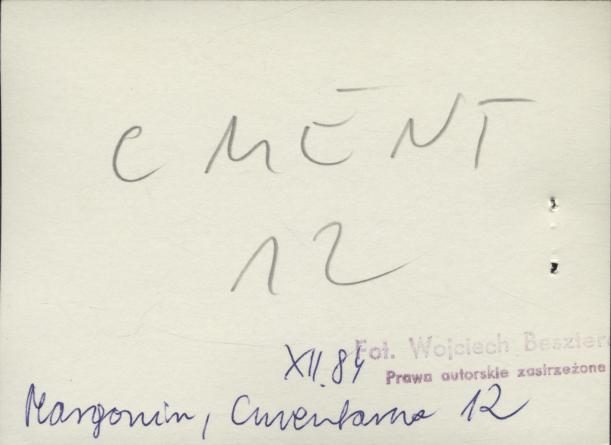 CMENT
12
XII.84
Fot. Wojciech Beszter
Prawa autorskie zastrzeżone
Margonin, Cmentarna 12